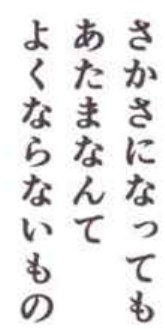 さかさになっても
あたまなんて
よくならないもの